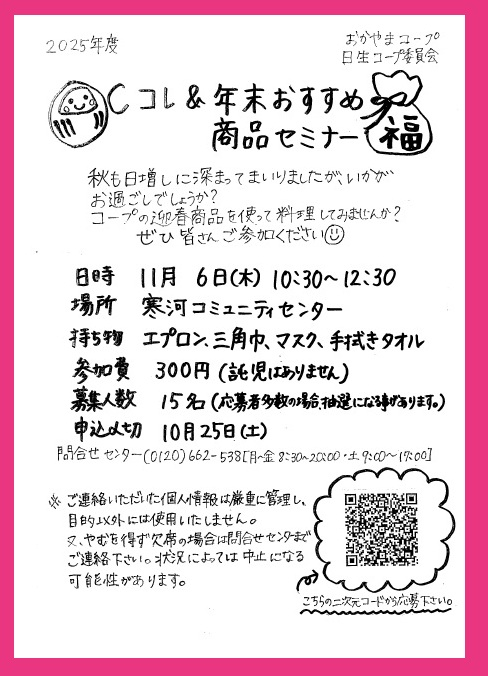 2025年度
おかやまコープ
日生コープ委員会
Cコレ&年末おすすめ
商品セミナー
福
秋も日増しに深まってまいりましたが、いかが
お過ごしでしょうか?
コープの迎春商品を使って料理してみませんか?
ぜひ皆さんご参加ください
日時 11月 6日(木) 10:30~12:30
場所 寒河コミュニティセンター
持ち物 エプロン、三角巾、マスク、手拭きタオル
参加費 300円(託児はありません)
募集人数 15名(応募者多数の場合、抽選になる事があります。)
申込〆切 10月25日(土)
問合せセンター(0120)662-538[月~金 8:30~20:00・土 9:00~19:00]
※ ご連絡いただいた個人情報は厳重に管理し、
目的以外には使用いたしません。
又、やむを得ず欠席の場合は問合せセンターまで
ご連絡下さい。状況によっては中止になる
可能性があります。
こちらの二次元コードから応募下さい。